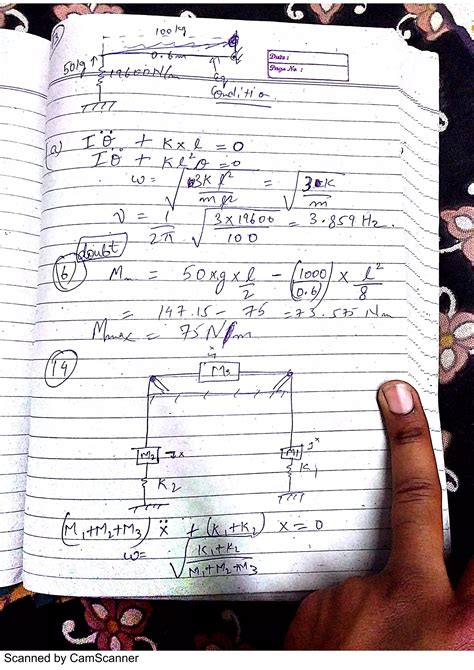 100kg
Date :
Page No. :
0.6m
50kg
19600N/m
Eq
Condition
a) Iθ̈ + K x l = 0
Iθ̈ + Kl²θ = 0
ω = √(3Kl²/ml²) = √(3K/m)
ν = 1/2π √(3×19600/100) = 3.859 Hz.
doubt
b) Mm = 50xgx l/2 - (1000/0.6) x l²/8
= 147.15 - 75 = 73.575 Nm
Mmax = 75 Nm
14
x
M3
M2 x
M1 x
K2
K1
(M1+M2+M3) ẍ + (K1+K2) x = 0
ω = √(K1+K2/M1+M2+M3)
Scanned by CamScanner